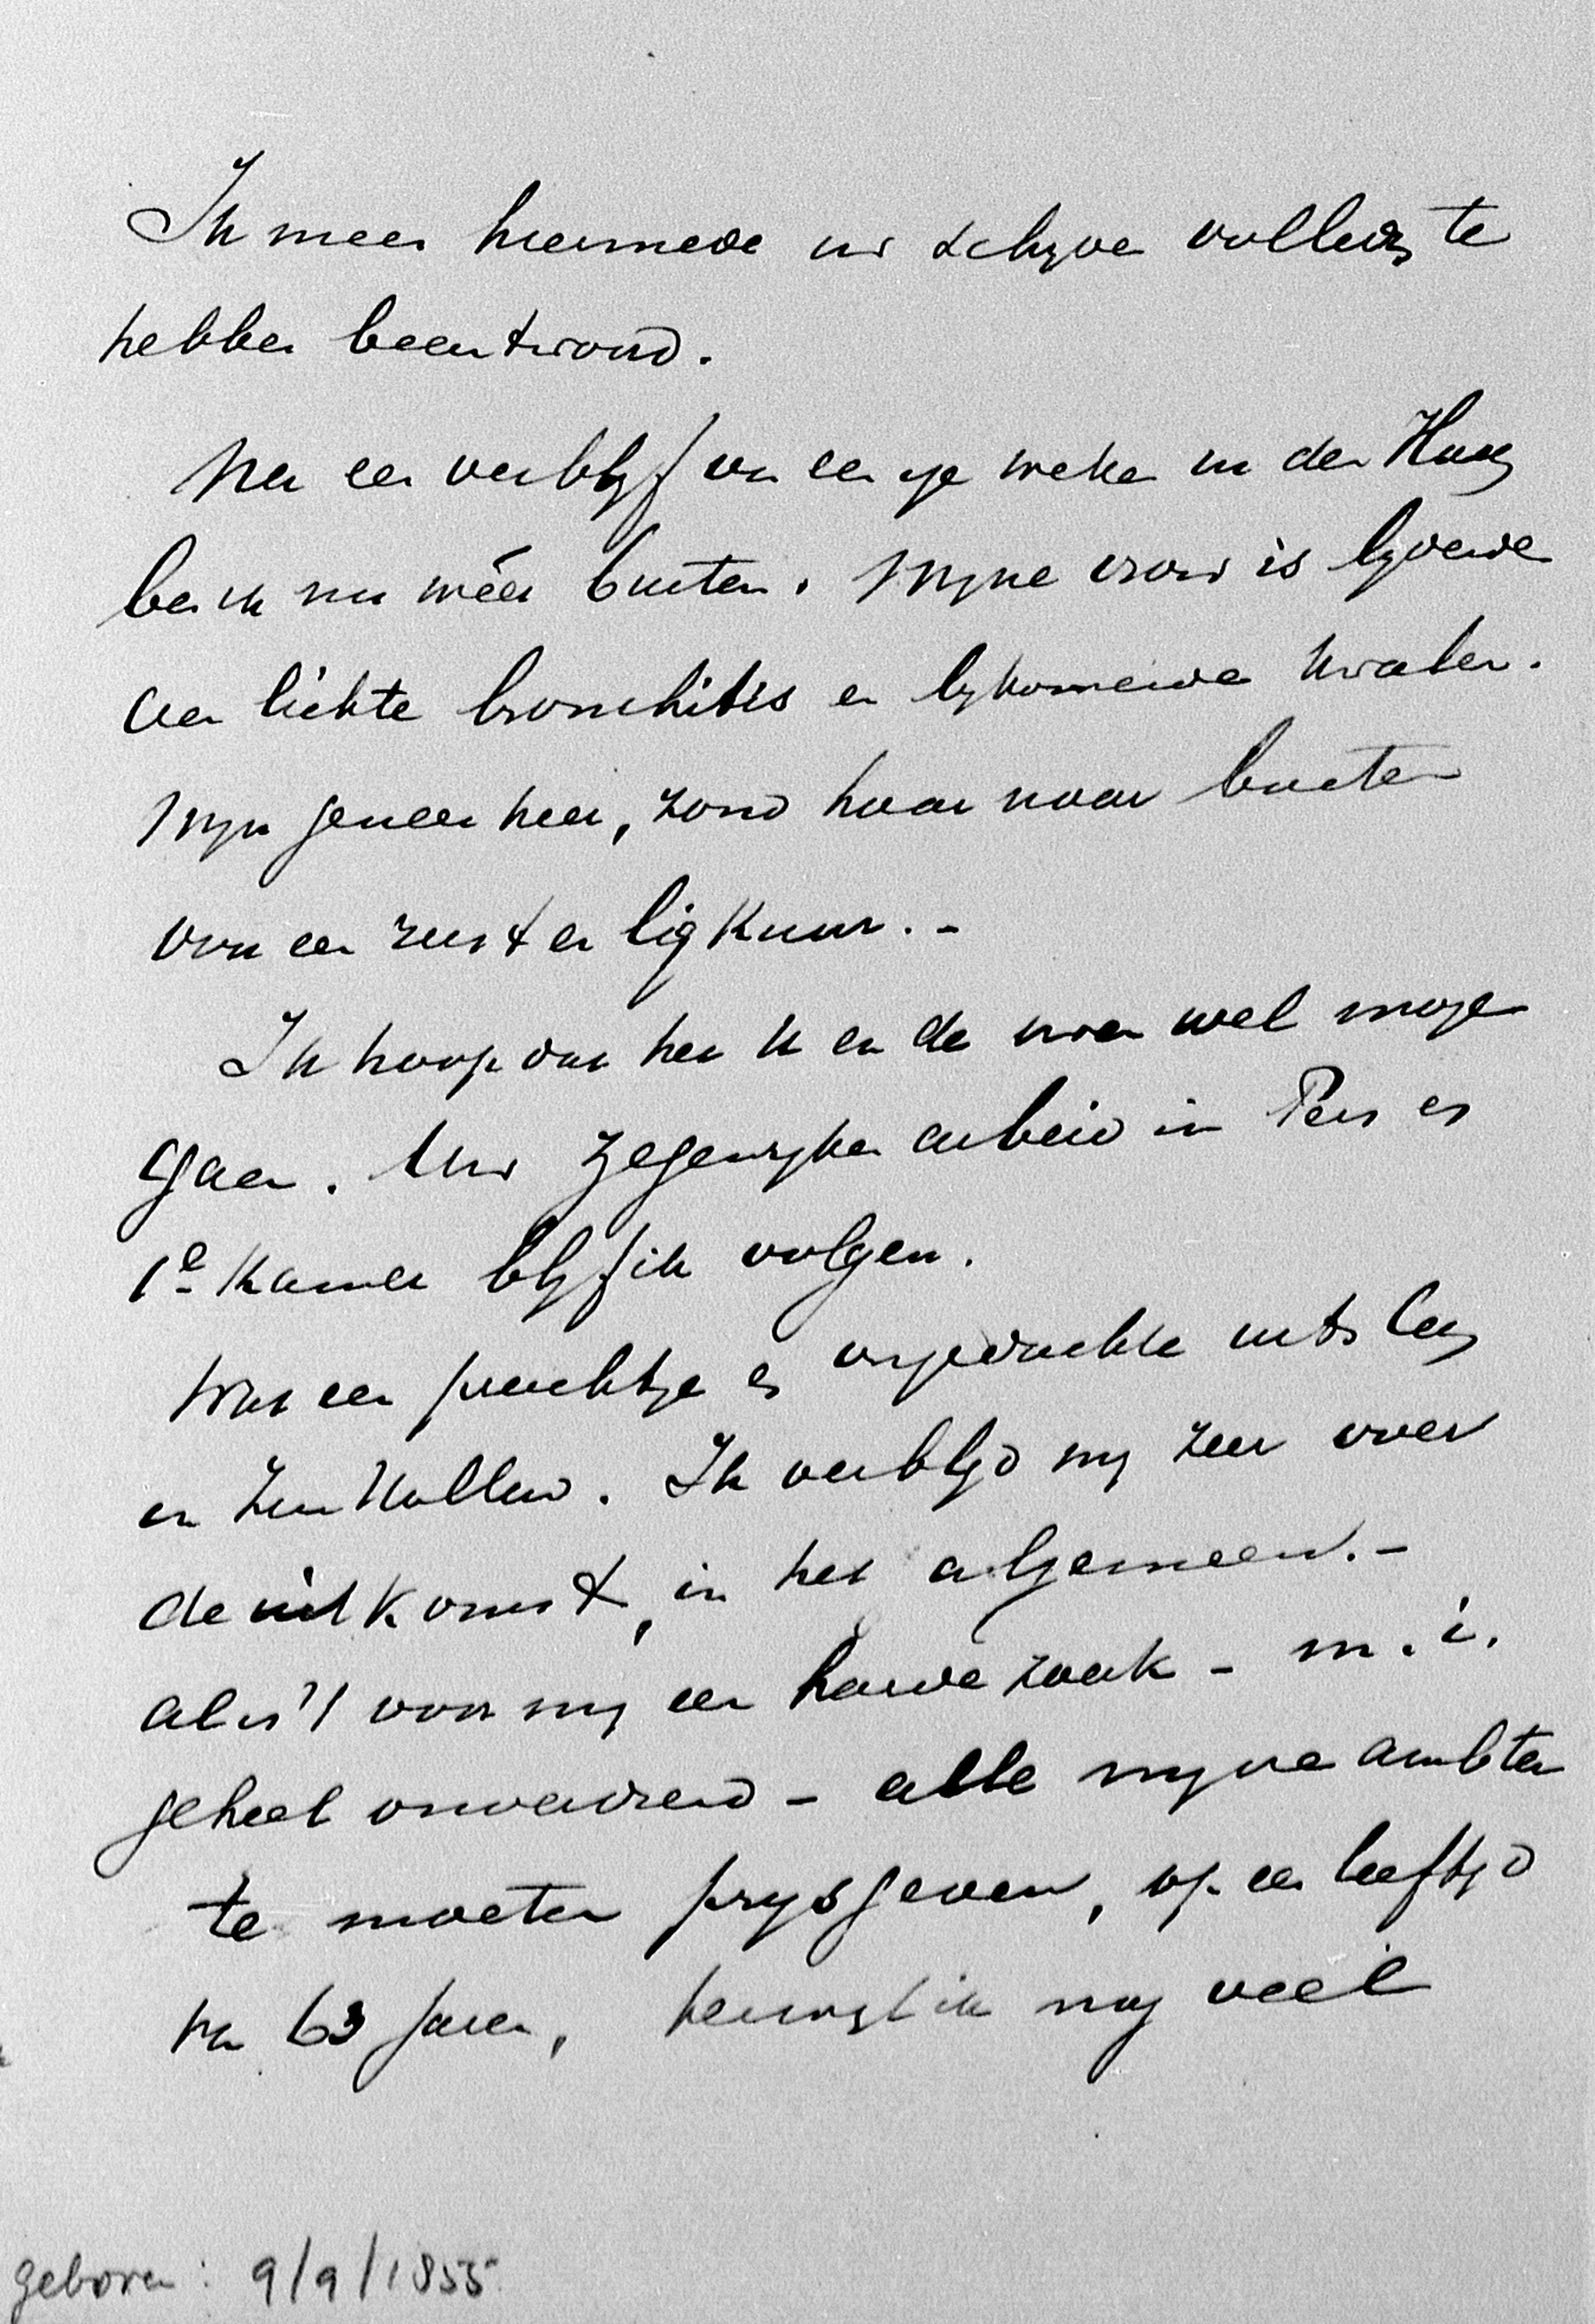 Ik meen hiermede uw schrijven volledig te
hebben beantwoord.
Na een verblijf van eenige weken in den Haag
ben ik nu wéér buiten. Mijne vrouw is lijdende
aan lichte bronchitis en bijkomende kwalen.
Mijn geneesheer, zond haar naar buiten
voor een rust en ligkuur. -
Ik hoop dat het U en de uwen wel moge
gaan. Uw zegenrijken arbeid in Pers en
1e Kamer blijf ik volgen.
Wat een prachtige en uitslag
in Zuid Holland. Ik verblijd mij zeer over
de uitkomst, in het algemeen. -
al is 't voor mij een harde zaak - m. i.
geheel onverdiend - alle mijne ambten
te moeten prijsgeven, op een leeftijd
van 63 jaren, terwijl ik nog veel
geboren : 9/9/1855